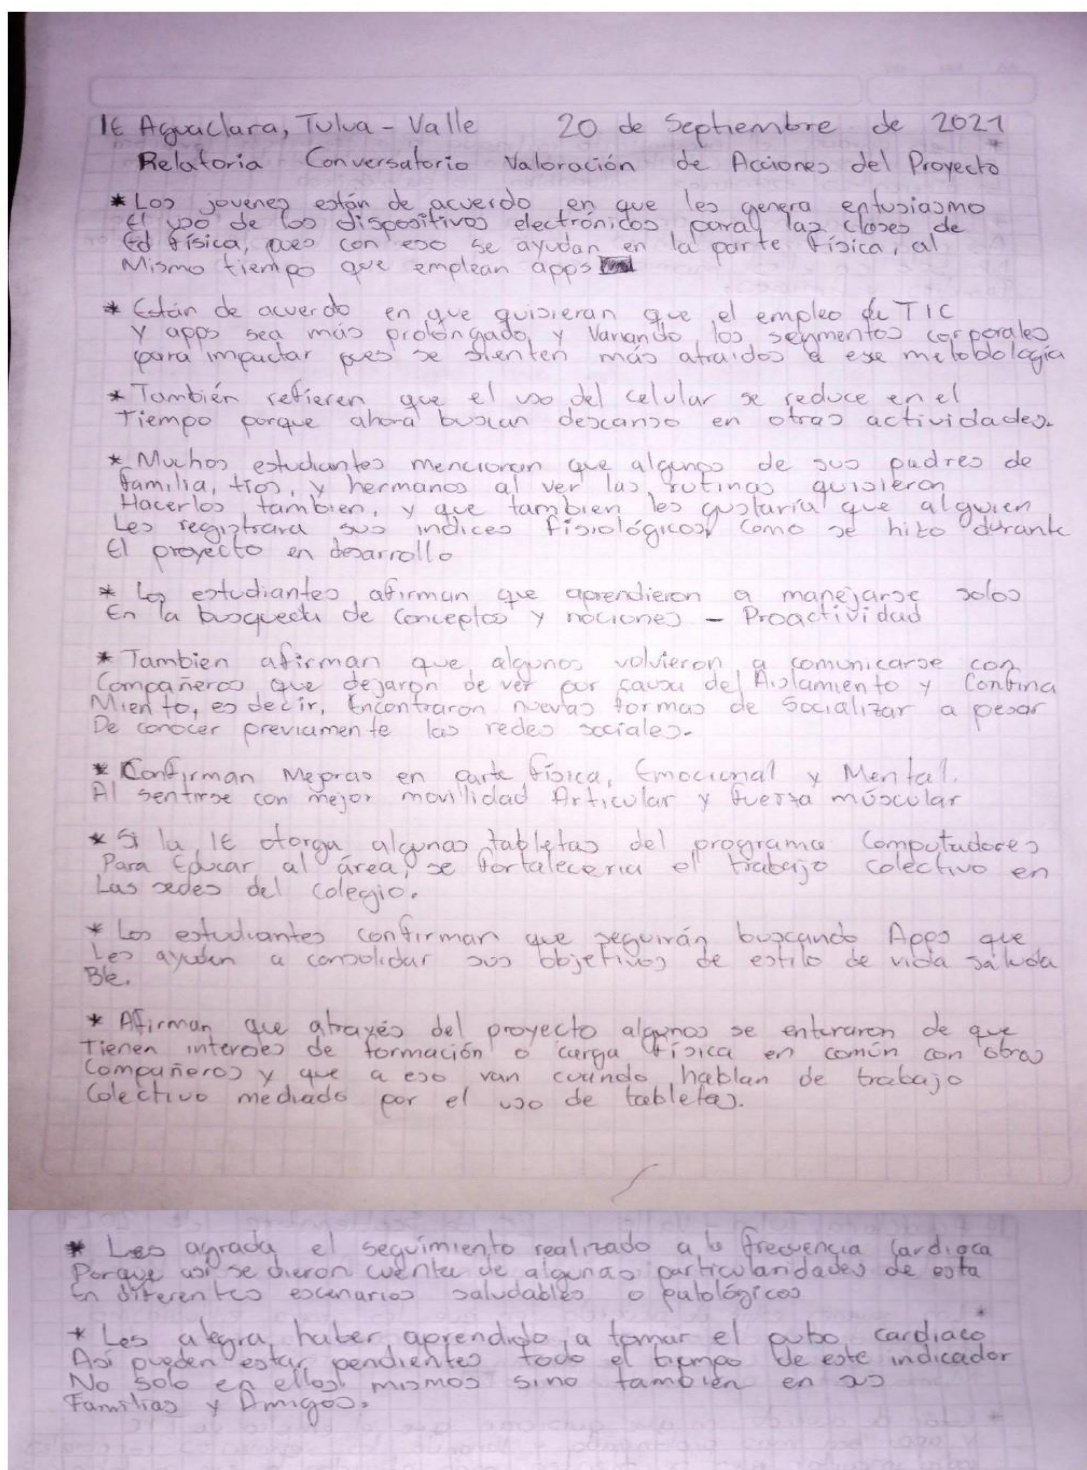 IE Aguaclara, Tulua - Valle 20 de Septiembre de 2021
Relatoria Conversatorio Valoración de Acciones del Proyecto
* Los jovenes están de acuerdo en que les genera entusiasmo
El uso de los dispositivos electrónicos para las clases de
Ed física, pues con eso se ayudan en la parte física, al
Mismo tiempo que emplean apps
* Están de acuerdo en que quisieran que el empleo de TIC
y apps sea más prolongado y variando los segmentos corporales
para impactar pues se sienten más atraidos a ese metodología
* También refieren que el uso del celular se reduce en el
Tiempo porque ahora buscan descanso en otras actividades.
* Muchos estudiantes mencionan que algunos de sus padres de
familia, tios, y hermanos al ver las rutinas quisieron
Hacerlos tambien, y que tambien les gustaría que alguien
Les registrara sus indices fisiológicos, como se hizo durante
El proyecto en desarrollo
* Los estudiantes afirman que aprendieron a manejarse solos
En la busqueda de conceptos y nociones - Proactividad
* Tambien afirman que algunos volvieron a comunicarse con
Compañeros que dejaron de ver por causa del Aislamiento y Confina
Miento, es decir, Encontraron nuevas formas de Socializar a pesar
De conocer previamente las redes sociales.
* Confirman Mejoras en parte física, Emocional y Mental.
Al sentirse con mejor movilidad Articular y fuerza múscular
* Si la IE otorga algunas tabletas del programa Computadores
Para Educar al área, se fortaleceria el trabajo colectivo en
Las sedes del colegio.
* Los estudiantes confirman que seguirán buscando Apps que
Les ayuden a consolidar sus objetivos de estilo de vida saluda
Ble.
* Afirman que através del proyecto algunos se enteraron de que
Tienen interses de formación o carga física en común con otros
Compañeros y que a eso van cuando hablan de trabajo
Colectivo mediado por el uso de tabletas.
* Les agrada el seguimiento realizado a la frecuencia Cardiaca
Porque asi se dieron cuenta de algunas particularidades de esta
En diferentes escenarios saludables o patológicos
* Les alegra haber aprendido a tomar el pulso cardiaco
Asi pueden estar pendientes todo el tiempo de este indicador
No solo en ellos mismos sino también en sus
Familias y Amigos.